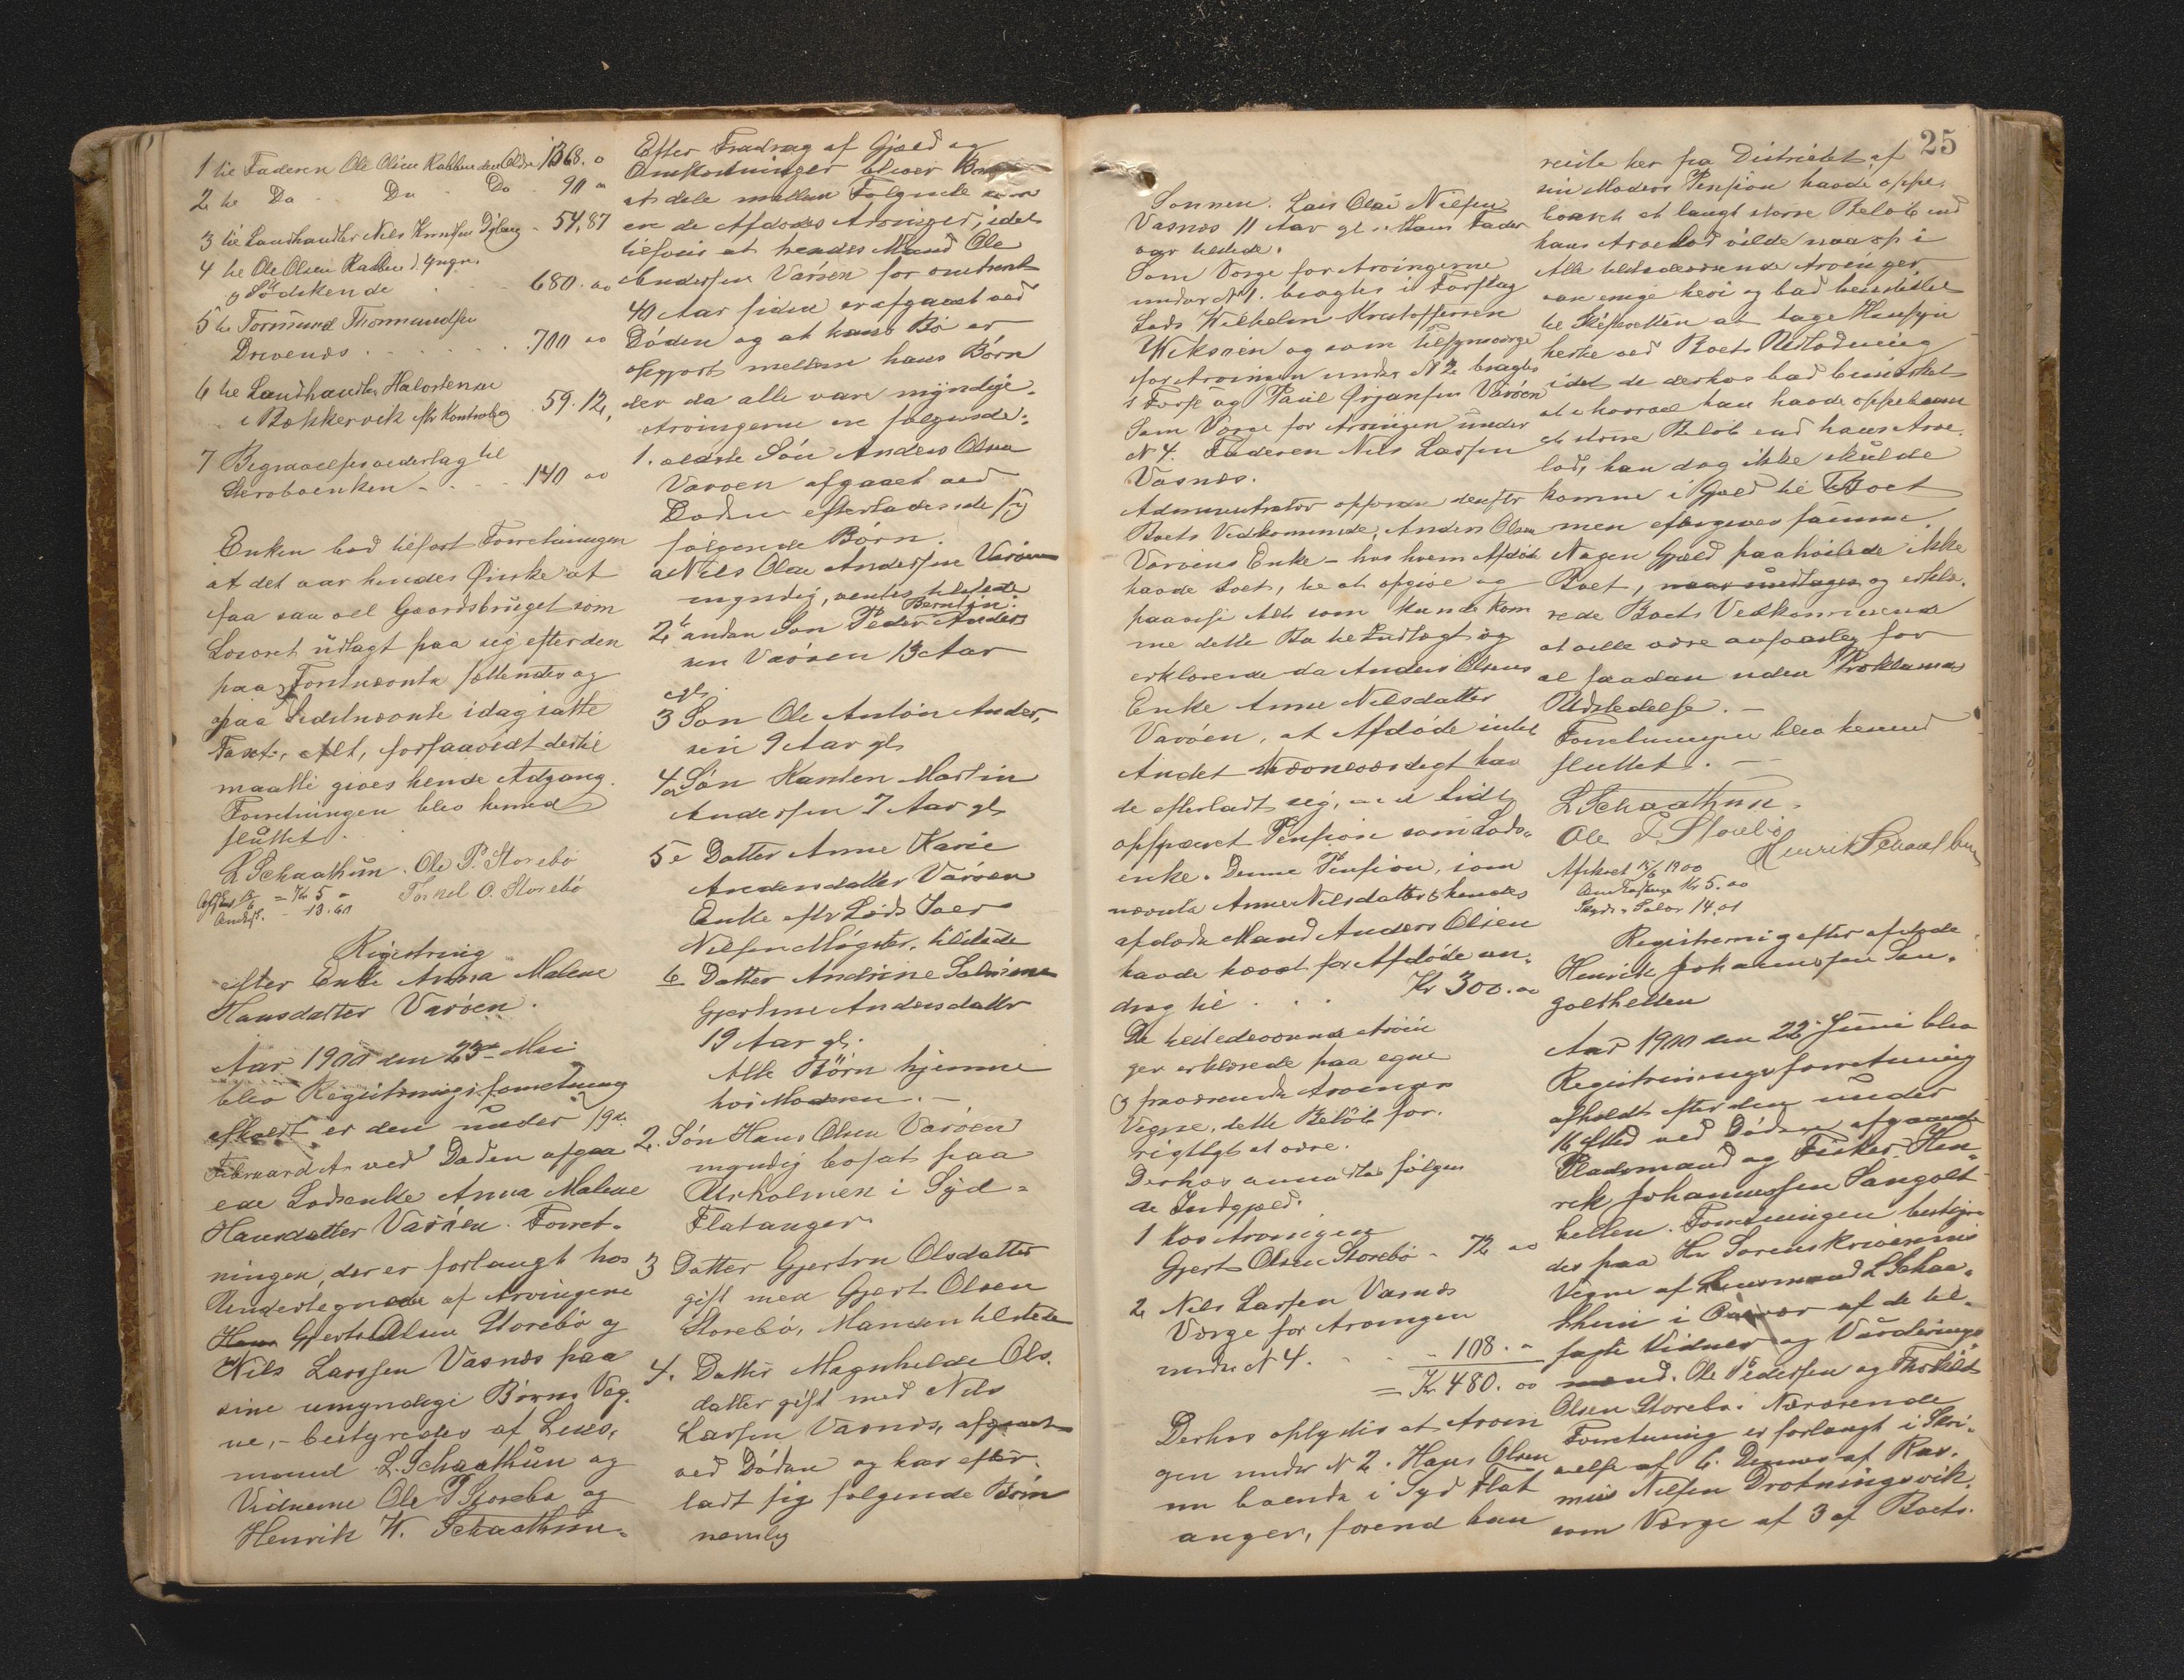 1 til Faderen Ole Olsen Rabben den Ældre 1368. 0
2 til Do Do Do 90 "
3 til Landhandler Nils Knudsen 54,87
4 til Ole Olsen Rabben d. yngre
og Södskende 680. 00
5 til Tormund Thormundsen
Drivenes 700 00
6 til Landhandler Halvorsen
i Bækkervik efter Kontrabog 59. 12,
7 Begravelsesvederlag til
Sterboenken 140 00
Enken bad tilfört Forretningen
at det var hendes Ønske at
faa saavel Gaardsbruget som
Lösöret udlagt paa sig efter den
paa Förstnævnte sættendes og
paa Sidstnævnte idag satte
Taxt, Alt, forsaavidt dertil
maatte gives hende Adgang.
Forretningen blev hermed
sluttet.
L Schaathun. Ole P. Storebö
Torkel O. Storebö
= Kr 5 "
- 13.60
Registrering
efter Enke Anna Malene
Hansdatter Varöen.
Aar 1900 den 23de Mai
blev Registreringsforretning
afholdt er den under 19de
Februar d. A. ved Döden afgaa
ede Lodsenke Anna Malene
Hansdatter Varöen. Forret-
ningen, der er forlangt hos
Undertegnede af Arvingene
Hans Gjert Olsen Storebö og
Nils Larssen Vasnes paa
sine umyndige Börns Veg-
ne, - bestyredes af Lens-
mand L. Schaathun og
Vidnerne Ole P Storebø og
Henrik W. Schaathun.
Efter Fradrag af Gjæld og
Omkostninger bliver Boet
at dele mellem Følgende som
er de Afdödes Arvinger, idet
tilföies at hendes Mand Ole
Andersen Varöen for omtrent
40 Aar siden er afgaaet ved
Döden og at hans Bo er
opgjort mellem hans Börn
der da alle vare myndige.
Arvingerne er fölgende:
1. ældste Sön Anders Olsen
Varöen afgaaet ved
Döden efterladende sig
fölgende Börn.
a Nils Olai Andersen Varöen
myndig, ventes tilstede
Berntin.
2 anden Sön Peder Anders
sen Varöen 13 Aar
gl.
3 Sön Ole Anton Ander,
sen 9 Aar gl
4 Sön Karsten Martin
Andersen 7 Aar gl
5 e Datter Anne Karie
Andersdatter Varöen
Enke eftr Lods Iver
Nilsen Mögster, tilstede
6 Datter Andrine Salmine
Gjertine Andersdatter
19 Aar gl.
Alle Börn hjemme
hos Moderen. -
2. Sön Hans Olsen Varöen
myndig bosat paa
Utsholmen i Syd-
Flatanger.
3 Datter Gjertru Olsdatter
gift med Gjert Olsen
Storebö, Manden tilstede
4. Datter Magnhilde Ols.
datter gift med Nils
Larsen Vasnes, afgaaet
ved Döden og har efter-
ladt sig fölgende Börn
nemlig
25
Sönnen. Lars Olai Nilsen
Vasnes 11 Aar gl. Hans Fader
var tilstede.
Som Verge for Arvingerne
under N 1. bragtes i Forslag
Lods Wilhelm Kristoffersen
Wiksöen og som Tilsynsverge
for Arvingen under N 2 bragtes
i Forsl og Paul Ørjansen Varöen
Som Verge for Arvingen under
N 4. Faderen Nils Larsen
Vasnes.
Administrator opfordr derefter
Boets Vedkommende, Anders Olsen
Varöens Enke - hos hvem Afdöde
havde boet, til at opgive og
paavise Alt som kunde kom
me dette Bo til Indtægt og
erklærede da Anders Olsens
Enke Anne Nilsdatter
Varöen, at Afdöde intet
Andet Nævneværdigt hav
de efterladt sig, end lidt
opsparet Pension som Lods-
enke. Denne Pension, som
nævnte Anne Nilsdatter & hendes
afdöde Mand Anders Olsen
havde hævet for Afdöde an-
drog til . . . Kr 300.00
De tilstedeværende Arvin
ger erklærede paa egne
og fraværende Arvingers
Vegne, dette Belöb for-
rigtigt at være.
Derhos anmeldtes fölgen
de Indgjeld.
1 hos Arvingen
Gjert Olsen Storebö - 72 00
2 Nils Larsen Vasnes
Verge for Arvingen
under N 4. - 108. "
= Kr 480. 00
Derhos oplystes at Arvin
gen under N 2. Hans Olsen
nu boende i Syd Flat
anger, forend han
reiste her fra Distriktet af
sin Moders Pension havde oppe-
baaret et langt större Belöb end
hans Arvelod vilde naa op i
Alle tilstedeværende Arvinger
vare enige heri og bad henstillet
til Skifteretten at tage Hensyn
hertil ved Boets Udlodning
idet de derhos bad bemærket
at i hvorvel han havde oppebaaret
et större Belöb end hans Arve-
lod, han dog ikke skulde
komme i Gjæld til Boet
men eftergives samme.
Nogen Gjæld paahvilede ikke
Boet, og erklæ-
rede Boets Vedkommende
at ville være ansvarlig for
al saadan uden Proklamas
Udstedelse. -
Forretningen blev hermed
sluttet. -
L Schaathun.
Ole P. Storebö
Henrik Schaathun
Afskrevet 15/6 1900
Kr 5.00
14.01
Registrering efter afdöde
Henrik Johannessen San-
golthellen
Aar 1900 den 22de Juni blev
Registreringsforretning
afholdt efter den under
16 ved Döden afgaaede
Pladsmand og Fisker Hen-
rik Johannessen Sangolt
hellen. Forretningen bestyre
des paa Hr Sorenskriverens
Vegne af Lensmand L Schaa-
thun i Overvær af de til-
sagte Vidner og Vurderings-
mænd. Ole Pedersen og Thorkild
Olsen Storebø. Nærværende
Forretning er forlangt i Skri-
velse af 6. Dennes af Ras-
mus Nilsen Drotningsvik
som Verge af 3 af Boets.